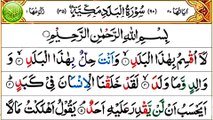 سُوْرَةُ الْبَلَدِ مَكِّيَّةٌ (٩٠) (٣٥)
بِسْمِ اللّٰهِ الرَّحْمٰنِ الرَّحِيْمِ
لَاۤ اُقْسِمُ بِهٰذَا الْبَلَدِ وَاَنْتَ حِلٌّۢ بِهٰذَا الْبَلَدِ
وَوَالِدٍ وَّمَا وَلَدَ لَقَدْ خَلَقْنَا الْاِنْسَانَ فِيْ كَبَدٍ
اَيَحْسَبُ اَنْ لَّنْ يَّقْدِرَ عَلَيْهِ اَحَدٌ يَقُوْلُ اَهْلَكْتُ مَالًا